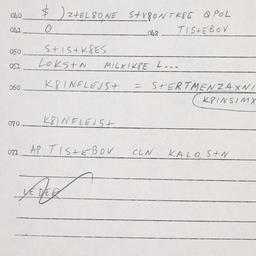 040 $ ) ZTEL8ONE STV8ONTK8E QPOL
041 0 042 TISTEBOV
050 STISTK8ES
052 LOKSTN MILXIK8E L...
060 K8INFLEJST = STERTMENZAXNI
(K8INSIMX
070 K8INFLEJST
072 AP TISTEBOV CLN KALO, STN